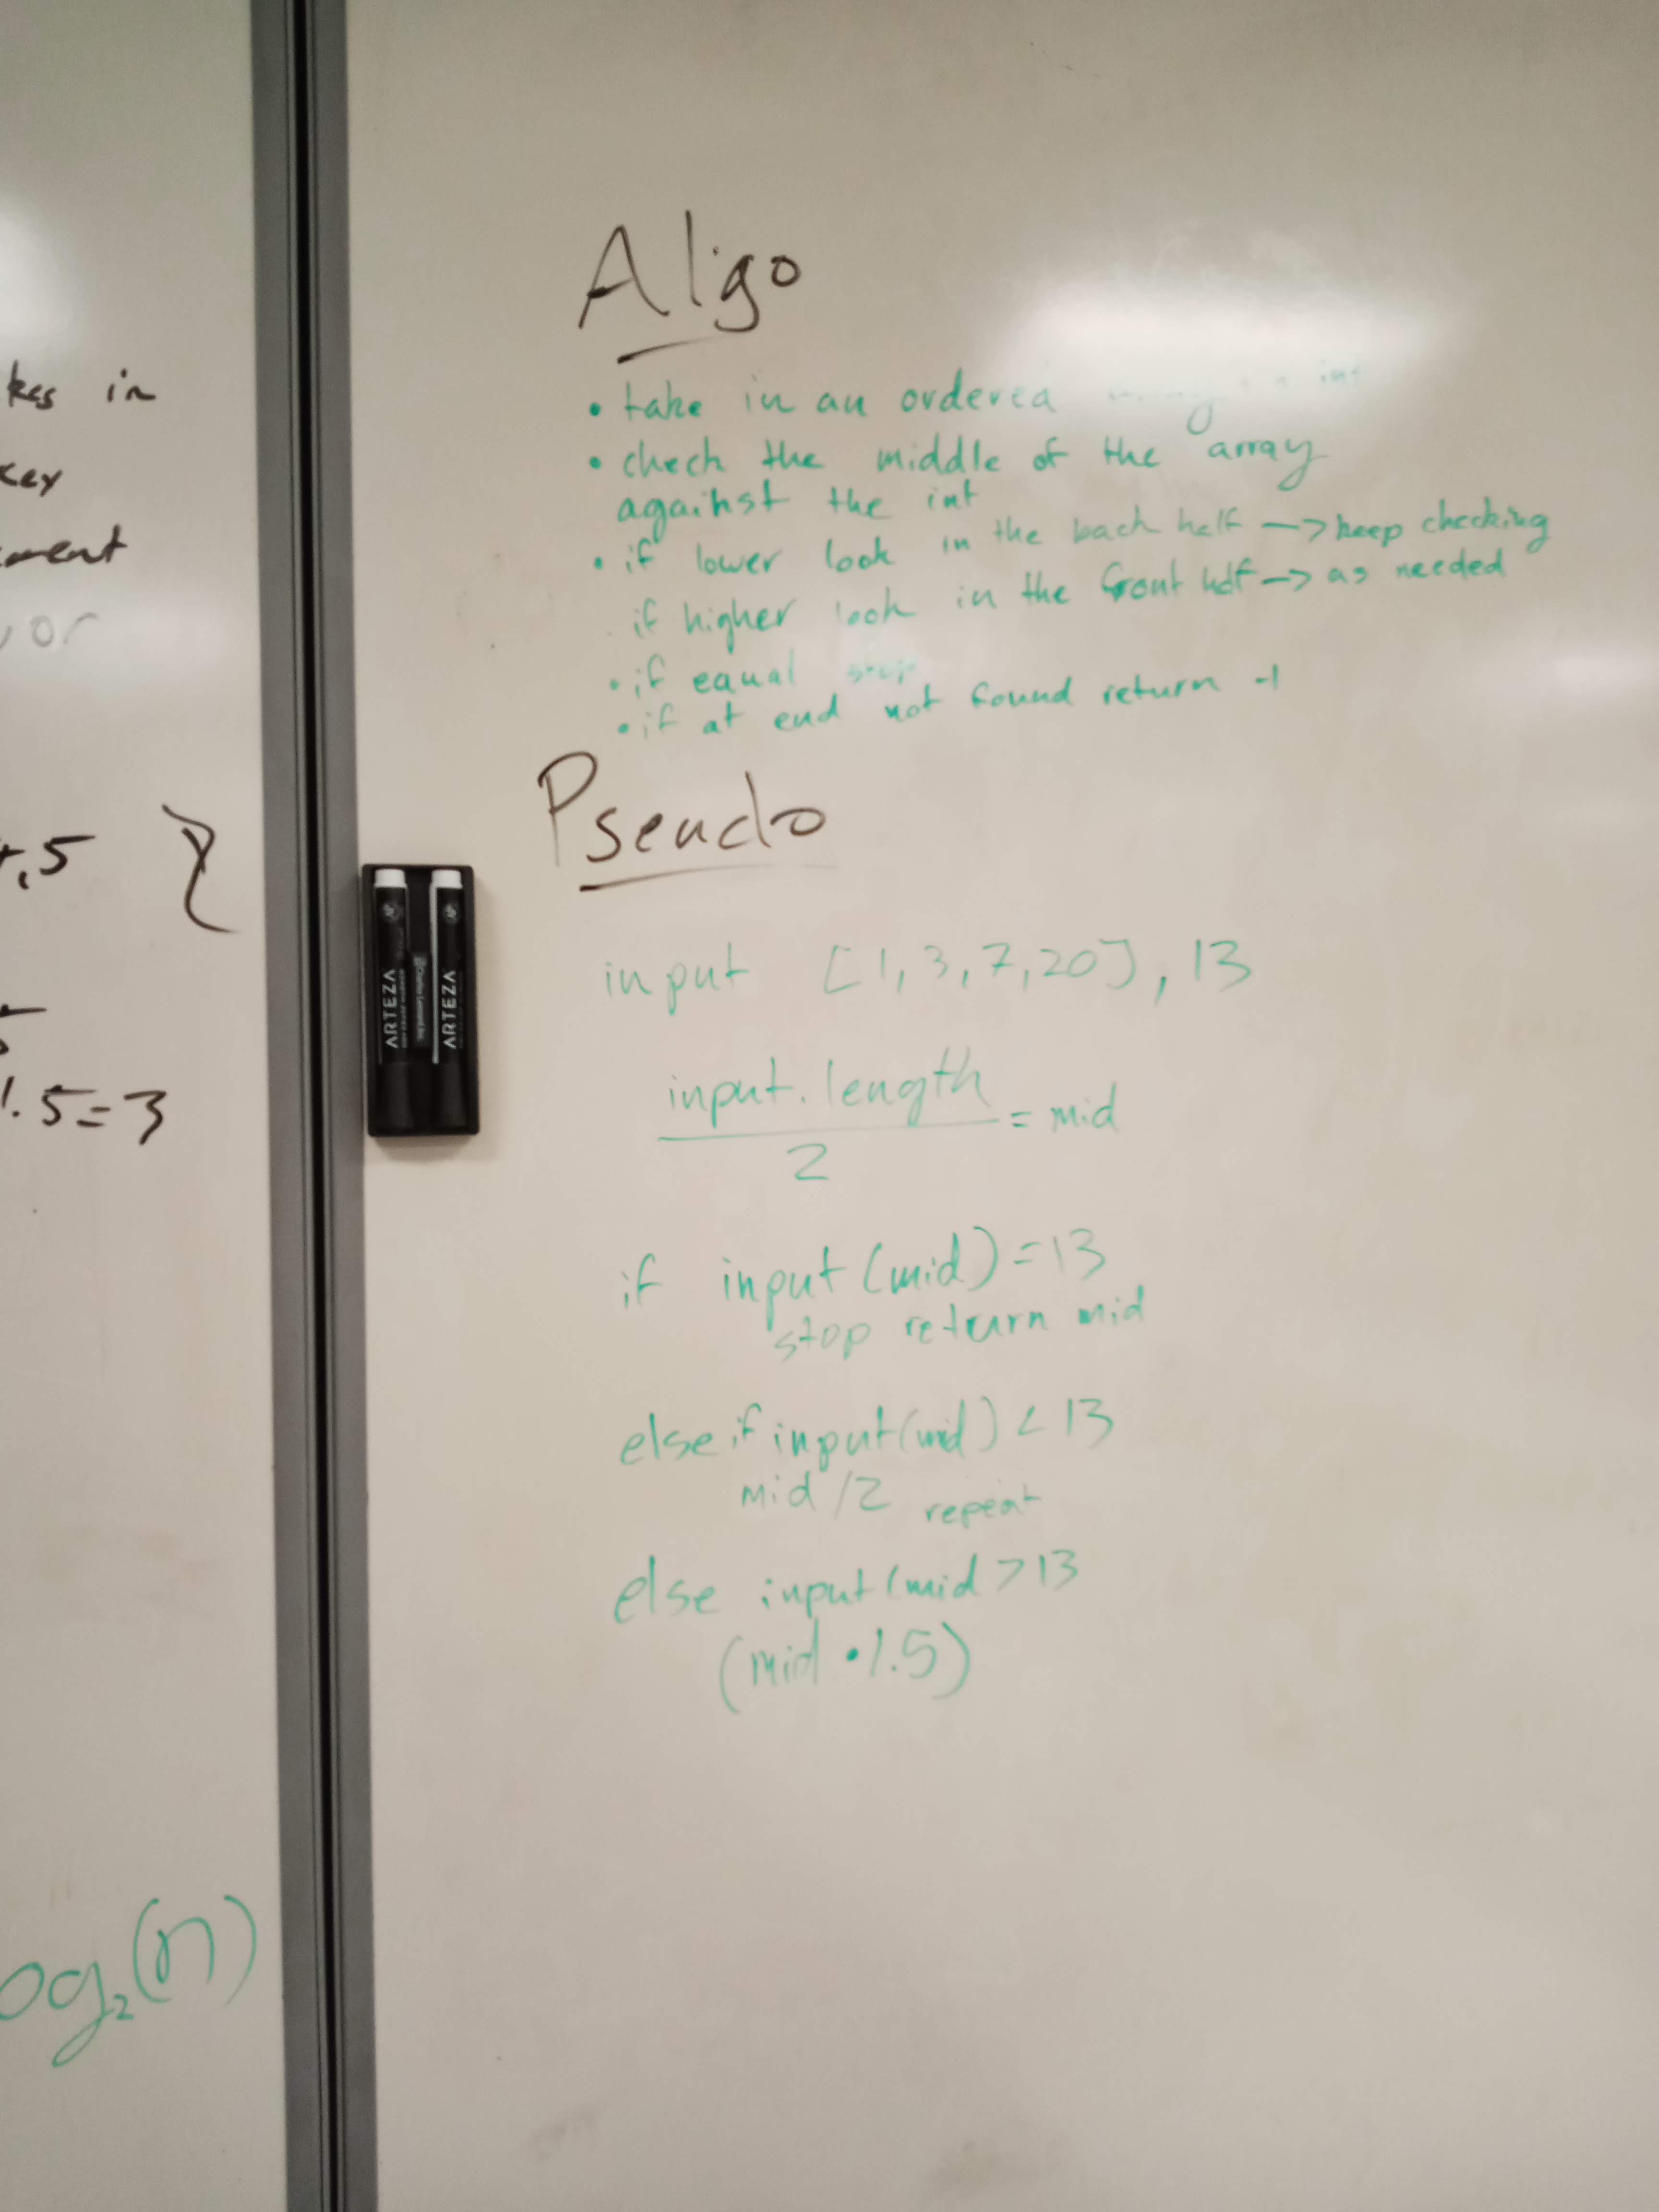 kes in
key
ment
, or
.5 }
1.5=3
og₂(n)
Algo
• take in an ordered int
• check the middle of the array
against the int
• if lower look in the back half —> keep checking
if higher look in the front half —> as needed
• if equal stop
• if at end not found return -1
Pseudo
ARTEZA
ARTEZA
input [1, 3, 7, 20], 13
input.length
= mid
2
if input (mid) = 13
stop return mid
else if input (mid) < 13
mid /2 repeat
else input (mid > 13
(mid • 1.5)